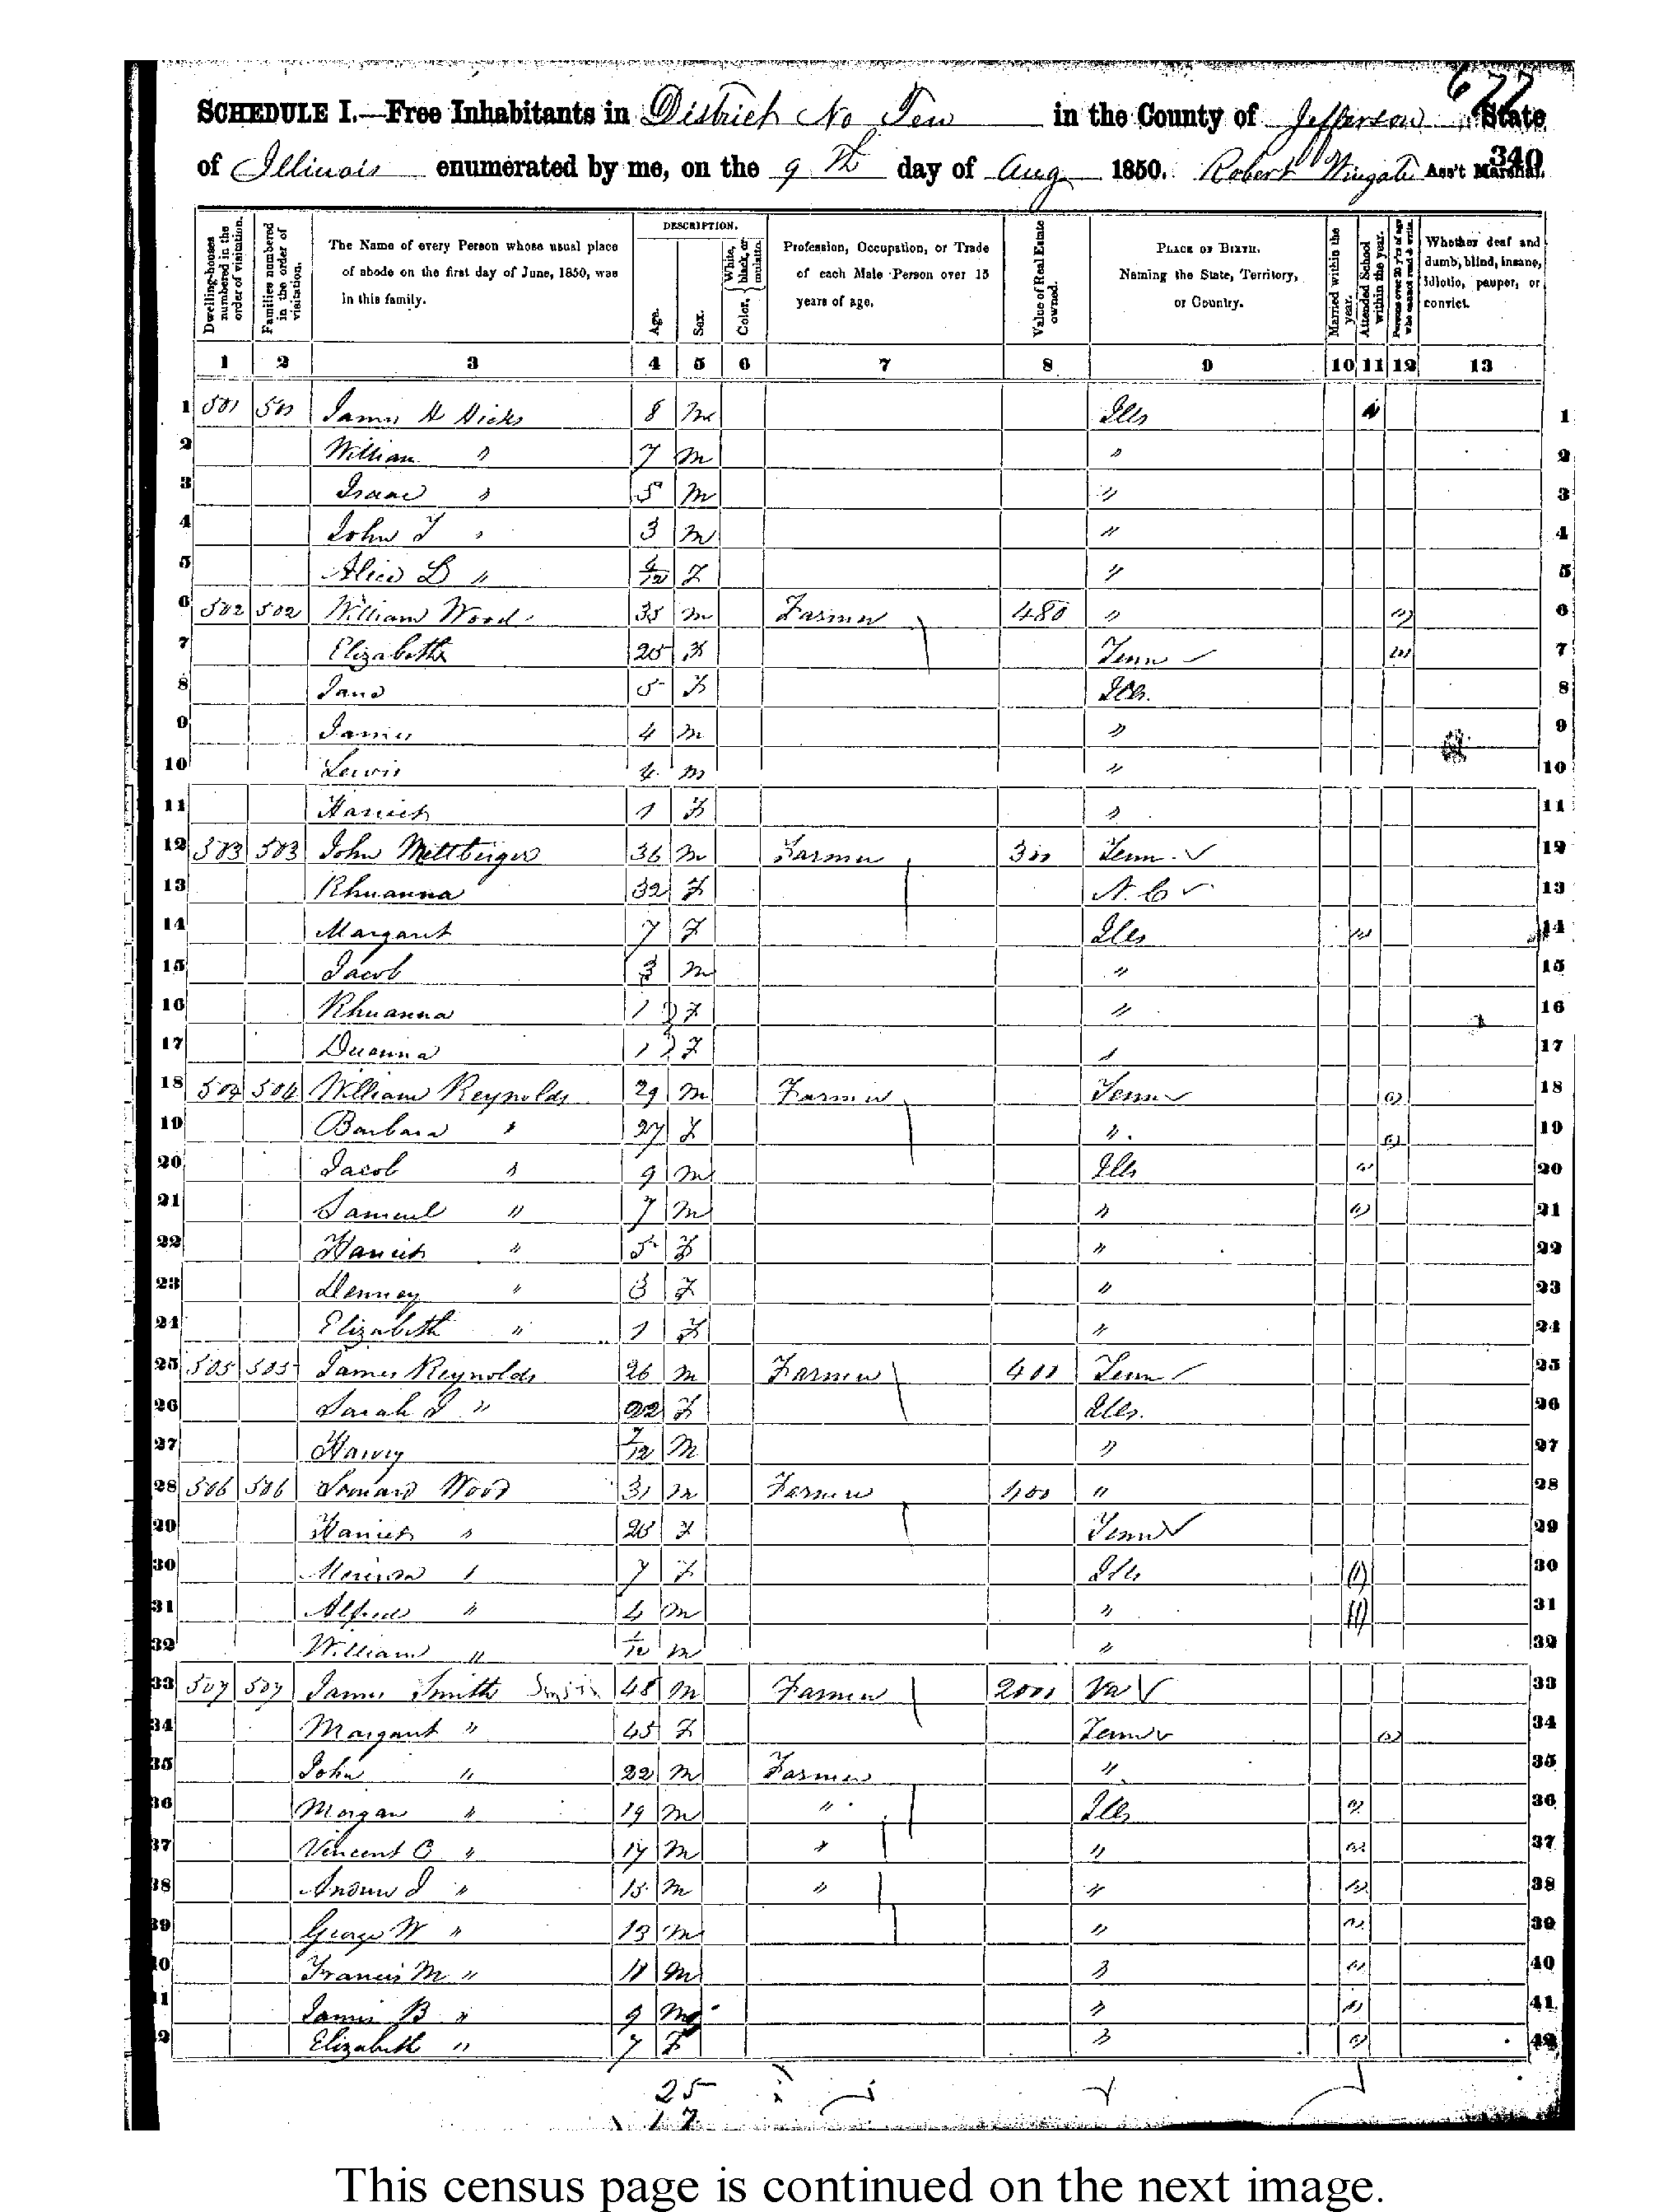 677
SCHEDULE I.—Free Inhabitants in District No Ten in the County of Jefferson State
340
of Illinois enumerated by me, on the 9th day of Aug 1850. Robert Wingate Ass't Marshal.
Dwelling-houses numbered in the order of visitation.
Families numbered in the order of visitation.
The Name of every Person whose usual place of abode on the first day of June, 1850, was in this family.
DESCRIPTION.
Age.
Sex.
Color, White, black, or mulatto.
Profession, Occupation, or Trade of each Male Person over 15 years of age.
Value of Real Estate owned.
PLACE OF BIRTH. Naming the State, Territory, or Country.
Married within the year.
Attended School within the year.
Persons over 20 y'rs of age who cannot read & write.
Whether deaf and dumb, blind, insane, idiotic, pauper, or convict.
1 2 3 4 5 6 7 8 9 10 11 12 13
1 501 501 James H Hicks 8 m Ills 1
2 William " 7 m " 2
3 Isaac " 5 m " 3
4 John T " 3 m " 4
5 Alice " /12 F " 5
6 502 502 William Wood 35 m Farmer 480 " 6
7 Elizabeth 25 F Tenn 7
8 Jane 5 F Ills. 8
9 James 4 m " 9
10 Lewis 4 m " 10
11 Harriet 1 F " 11
12 503 503 John 36 m Farmer 300 Tenn. 12
13 Rhuanna 32 F N. C 13
14 Margaret 7 F Ills 14
15 Jacob 3 m " 15
16 Rhuanna 1 F " 16
17 1 F " 17
18 504 504 William Reynolds 29 m Farmer Tenn 18
19 Barbara " 27 F " 19
20 Jacob " 9 m Ills 20
21 Samuel " 7 m " 21
22 Harriet " 5 F " 22
23 " 3 F " 23
24 Elizabeth " 1 F " 24
25 505 505 James Reynolds 26 m Farmer 400 Tenn 25
26 Sarah " 22 F Ills. 26
27 Harvey 7/12 m " 27
28 506 506 Wood 31 m Farmer 400 " 28
29 Harriet " 25 F Tenn 29
30 " 7 F Ills 30
31 Alfred " 4 m " 31
32 William " m " 32
33 507 507 James Smith 48 m Farmer 2000 Va 33
34 Margaret " 45 F Tenn 34
35 John " 22 m Farmer " 35
36 Morgan " 19 m " Ills 36
37 Vincent C " 17 m " " 37
38 Andrew J " 15 m " " 38
39 George W " 13 m " 39
40 Francis M " 11 m " 40
41 James B " 9 m " 41
42 Elizabeth " 7 F " 42
25
17
This census page is continued on the next image.